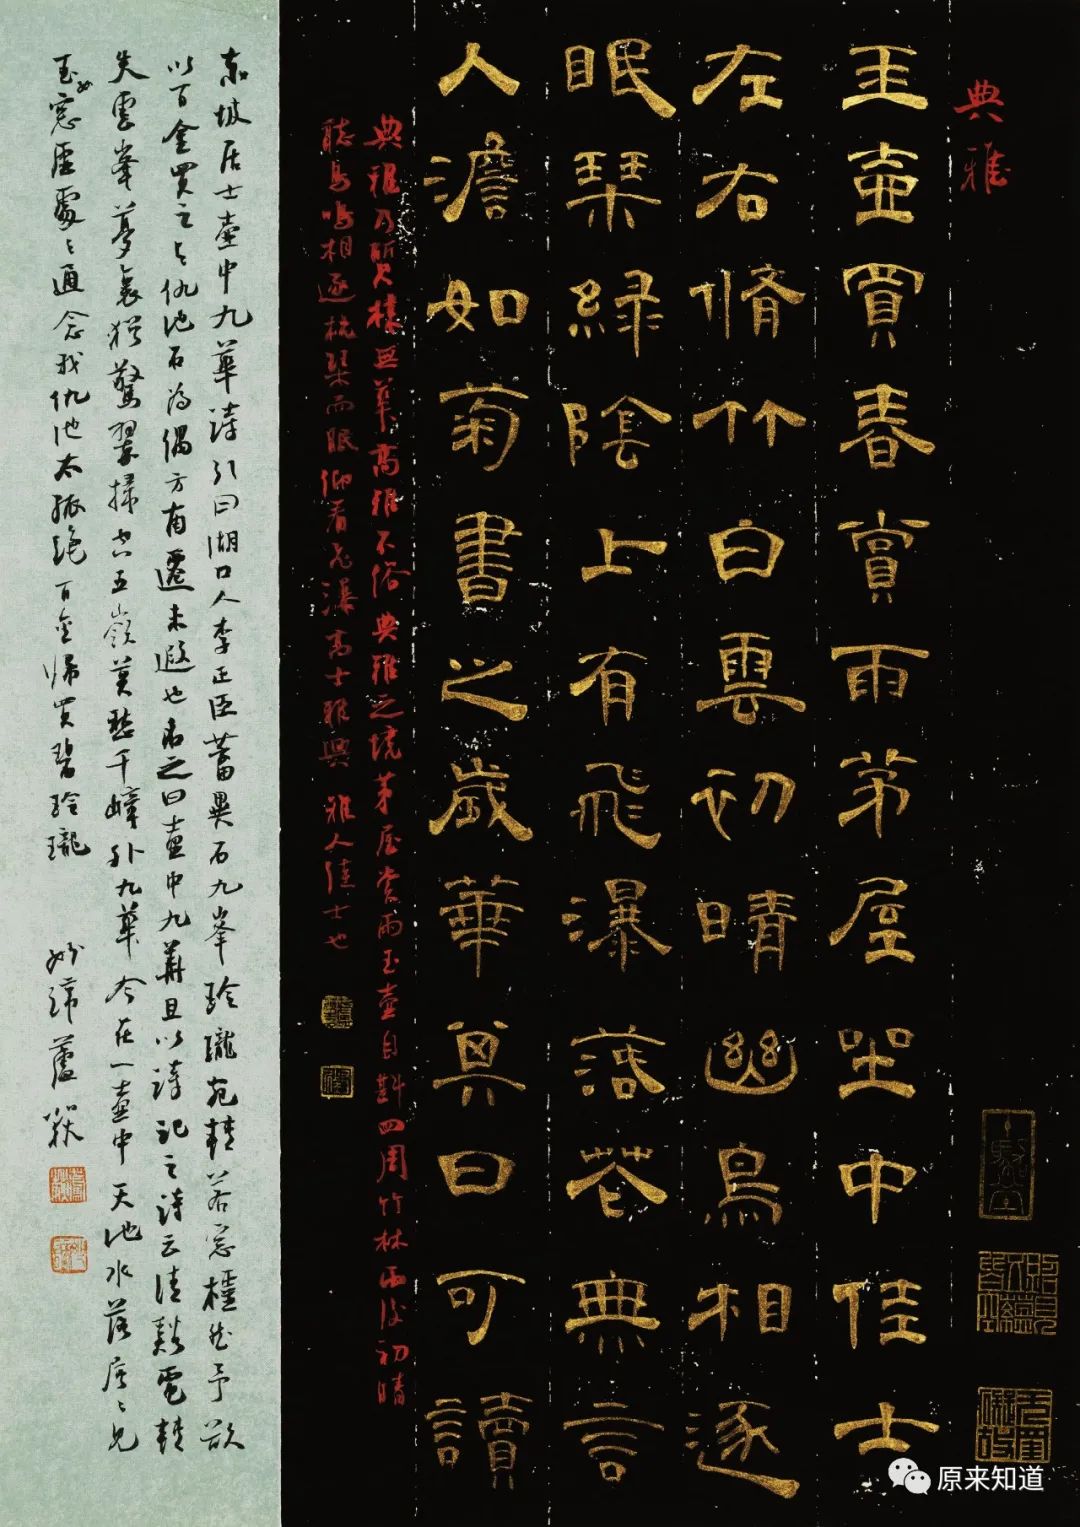 典雅
玉壺買春賞雨茅屋坐中佳士
左右脩竹白雲初晴幽鳥相逐
眠琹綠陰上有飛瀑落花無言
人澹如菊書之歲華其曰可讀
典雅乃瓦樸無華高雅不俗典雅之境茅屋賞雨玉壺自斟四周竹林雨後初晴
聽鳥鳴相逐枕琹而眠仰看飛瀑高士雅興雅人佳士也
東坡居士壺中九華詩引曰湖口人李正臣蓄異石九峯玲瓏宛轉若窓櫺然予欲
以百金買之与仇池石為偶方南遷未遑也名之曰壺中九華且以詩記之詩云清谿電轉
失雲峯夢裏猶驚翠掃空五嶺莫愁千嶂外九華今在一壺中天池水落層〻見
玉女窓虛處〻通念我仇池太孤絕百金歸買碧玲瓏
原来知道